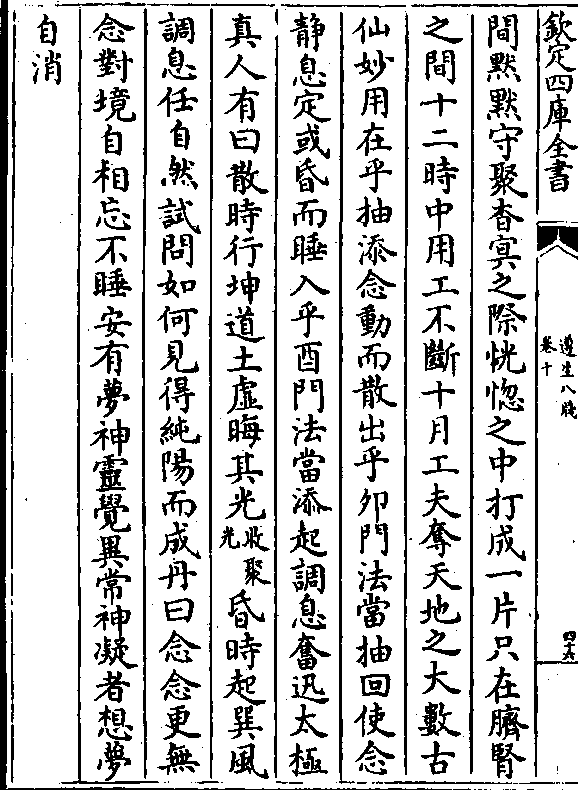 欽定四庫全書
遵生八牋
卷十
四十六
間默默守聚杳㝠之際恍惚之中打成一片只在臍腎
之間十二時中用工不斷十月工夫奪天地之大數古
仙妙用在乎抽添念動而散出乎卯門法當抽回使念
静息定或昏而睡入乎酉門法當添起調息奮迅太極
真人有曰散時行坤道土虛晦其光收聚光昏時起巽風
調息任自然試問如何見得純陽而成丹曰念念更無
念對境自相忘不睡安有夢神靈覺異常神凝者想夢
自消